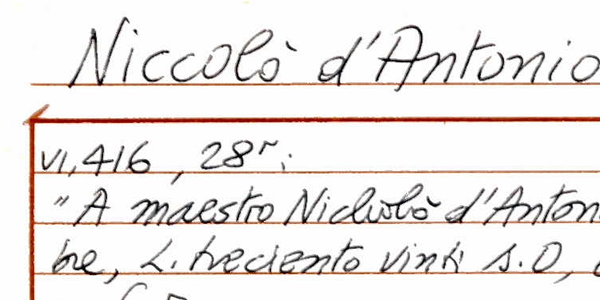 Niccolò d'Antonio
VI, 416, 28r:
"A maestro Nicholò d'Anton
bre, L. trecento vinti s. 0,